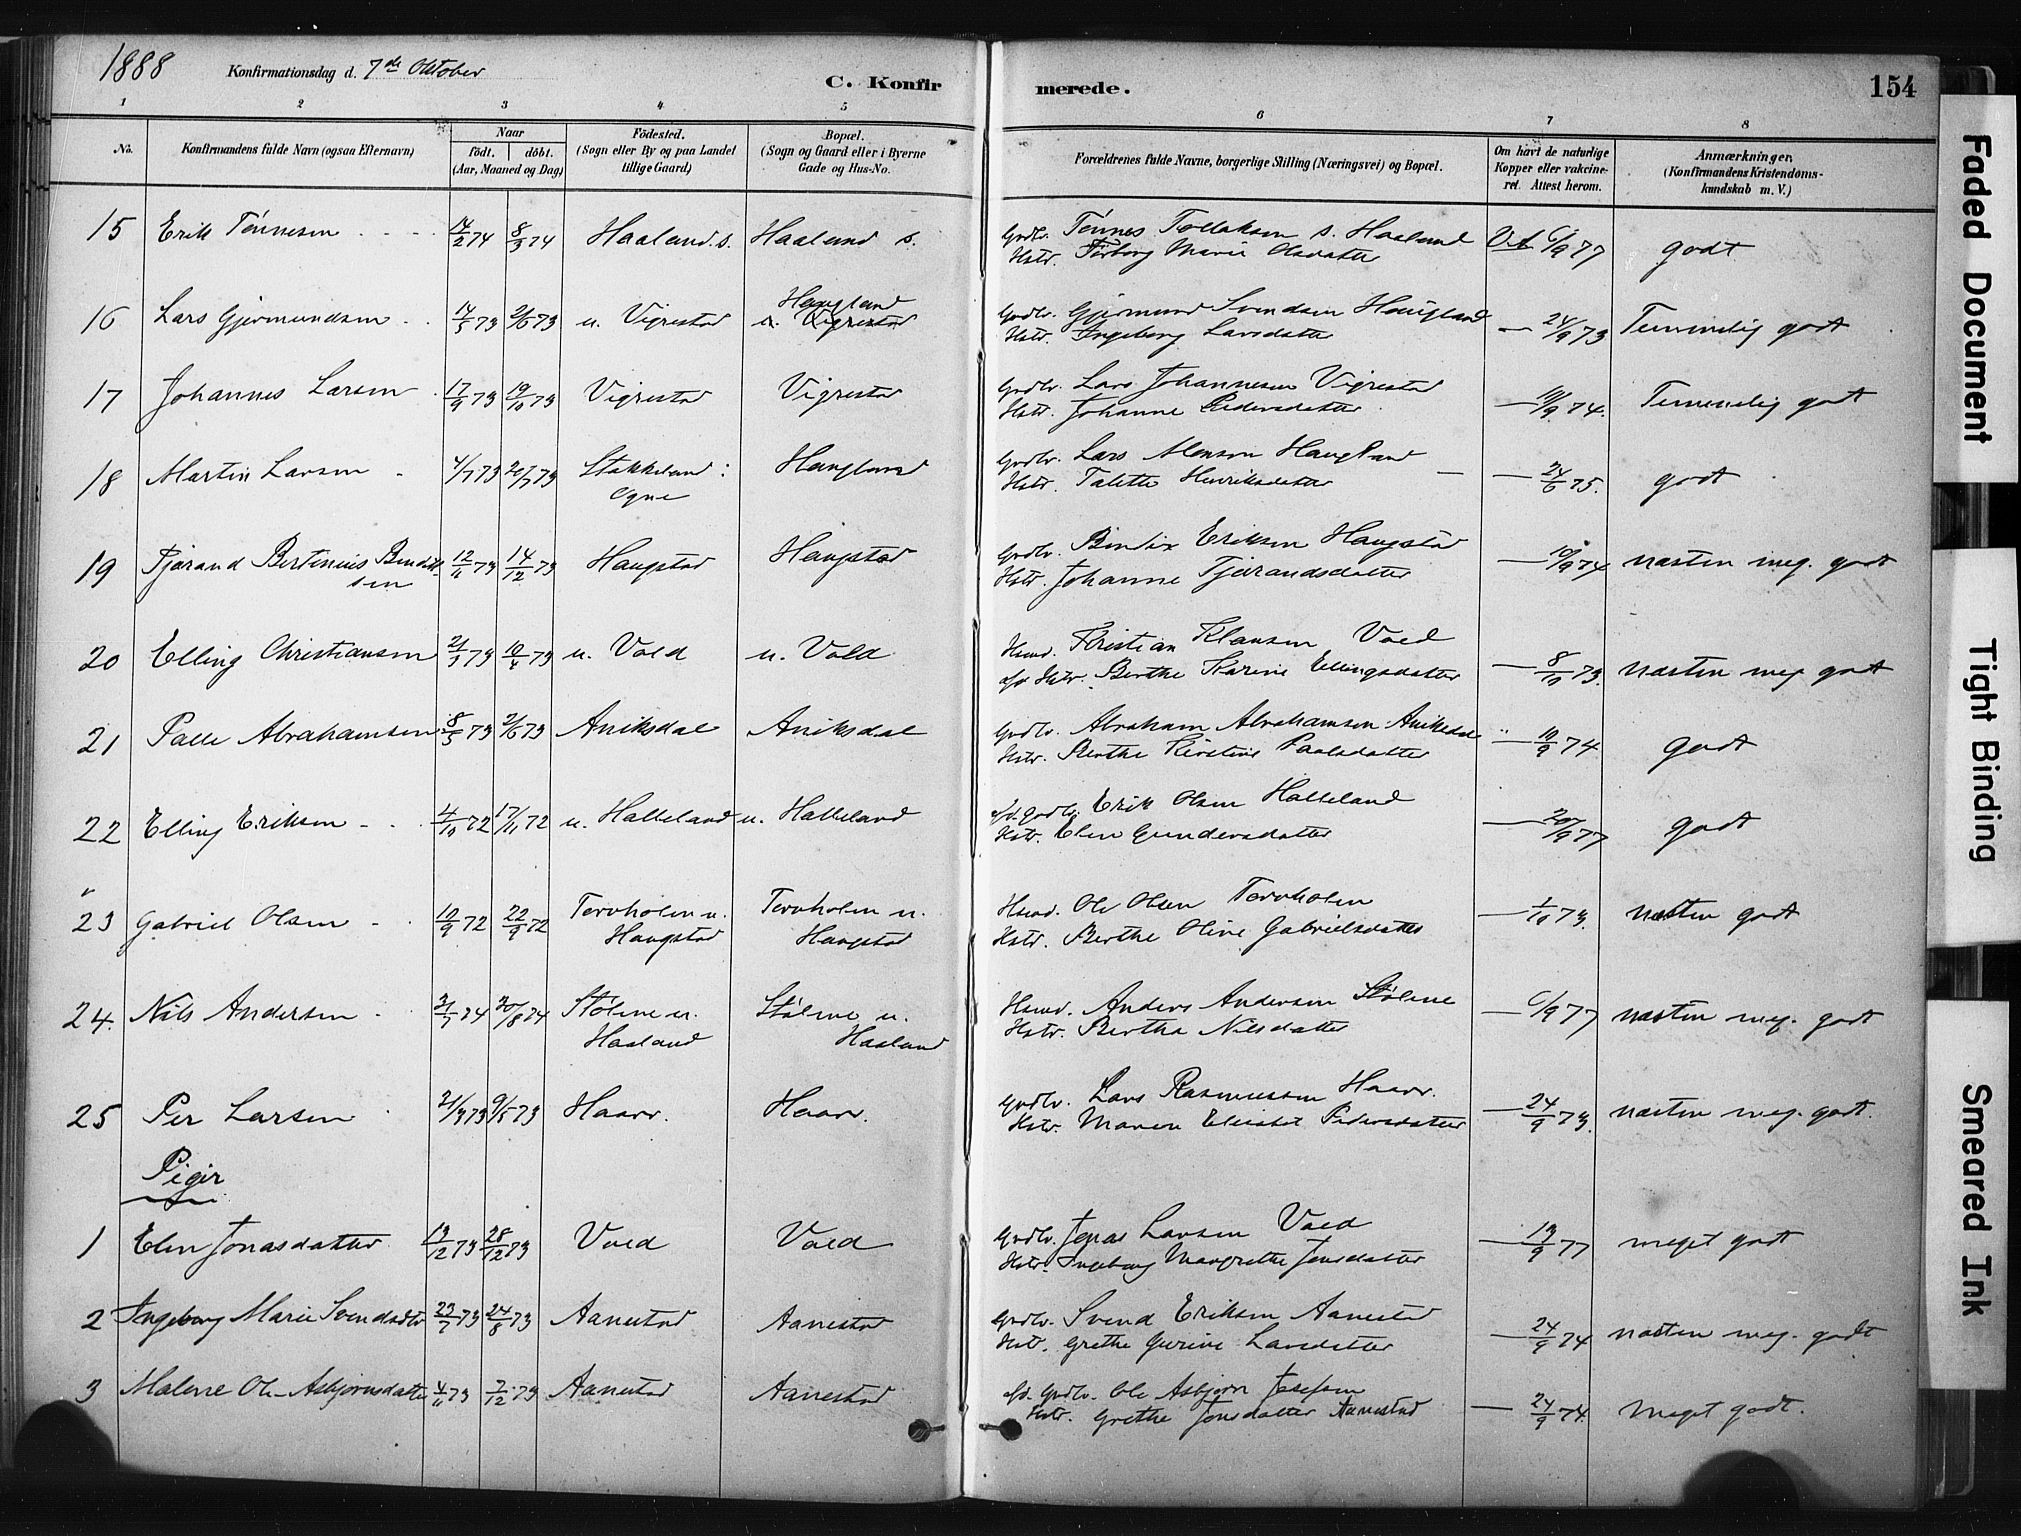 1888 Konfirmationsdag d. 7de Oktober
C. Konfirmerede. 154
1 2 3 4 5 6 7 8
No. Konfirmandens fulde Navn (ogsaa Efternavn) Naar födt. döbt. (Aar, Maaned og Dag) Födested. (Sogn eller By og paa Landet tillige Gaard) Bopæl. (Sogn og Gaard eller i Byerne Gade og Hus-No. Forældrenes fulde Navne, borgerlige Stilling (Næringsvei) og Bopæl. Om havt de naturlige Kopper eller vakcineret. Attest herom. Anmærkninger. (Konfirmandens Kristendomskundskab m. V.)
15 Erik Tönnesen 14/2 74 8/3 74 Haaland s. Haaland s. Gmdbr. Tönnes Tollaksen s. Haaland V.A. 6/9 77 godt
Hstr. Torborg Marie Olsdatter
16 Lars Gjermundsen 14/5 73 2/6 73 u. Vigrestad Haugland u. Vigrestad Gmdbr. Gjermund Svendsen Haugland — 24/9 73 Temmelig godt
Hstr. Ingeborg Larsdatter
17 Johannes Larsen 17/9 73 19/10 73 Vigrestad Vigrestad Gmdbr. Lars Johannesen Vigrestad — 10/9 74. Temmelig godt
Hstr. Johanne Pedersdatter
18 Martin Larsen 4/7 73 20/7 73 Stokkeland: Haugland Gmdbr. Lars Monson Haugland — 24/6 75. godt
Ogne Hstr. Talette Henriksdatter
19 Tjärand Bertinius Bendiksen 12/11 73 14/12 73 Haugstad Haugstad Gmdbr. Bendix Eriksen Haugstad — 10/9 74 næsten meg. godt
Hstr. Johanne Tjärandsdatter
20 Elling Christiansen 2/3 73 10/4 73 u. Vold u. Vold Hsmd. Kristian Klausen Vold — 8/10 73. næsten meg godt
afd. Hstr. Berthe Karine Ellingsdatter
21 Palle Abrahamsen 8/5 73 2/6 73 Aniksdal Aniksdal Gmdbr. Abraham Abrahamsen Aniksdal — 10/9 74. godt
Hstr. Berthe Kirstine Paalsdatter
22 Elling Eriksen 4/10 72 17/11 72 u. Halleland u. Halleland afd. Gmdbr. Erik Olsen Halleland — 20/9 77 godt
Hstr. Elen Gundersdatter
23 Gabriel Olsen 10/9 72 22/9 72 Torvholen u. Haugstad Torvholen u. Haugstad Hsmd. Ole Olsen Torvholen — 1/10 73. næsten godt
Hstr. Berthe Oline Gabrielsdatter
24. Nils Andersen 2/7 74 20/8 74 Stölene u. Haaland Stölene u. Haaland Hsmd. Anders Andersen Stölene — 6/9 77 næsten meg. godt
Hstr. Bertha Nilsdatter
25 Per Larsen 21/3 73 9/5 73 Haarr. Haarr. Gmdbr. Lars Rasmussen Haarr. — 24/9 73. næsten meg. godt.
Hstr. Maren Elisabet Pedersdatter
Piger
1 Elen Jonasdatter 13/12 73 28/12 73 Vold Vold Gmdbr. Jonas Larsen Vold — 13/9 77 meget godt
Hstr. Ingeborg Margrethe Jensdatter
2 Ingeborg Marie Svendsdtr 23/7 73 24/8 73 Aanestad Aanestad Gmdbr. Svend Eriksen Aanestad — 24/9 74 næsten meg. godt
Hstr. Grethe Gurine Larsdatter
3 Malene Ole-Asbjörnsdatter 4/11 73 7/12 73 Aanestad Aanestad afd. Gmdbr. Ole Asbjörn Josefsen — 24/9 74. Meget godt.
Hstr. Grethe Jonsdatter Aanestad
Faded Document
Tight Binding
Smeared Ink